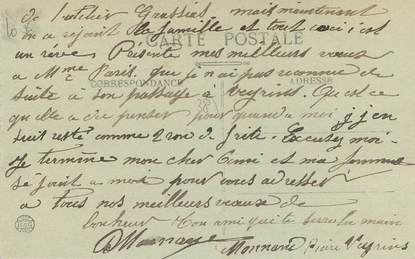 de l'atelier Grassias mais maintenant
on a rejoint la famille et tout ceci est
un rêve Présente mes meilleurs vœux
CARTE POSTALE
a Mme Paris que je n'ai pas reconnue de
suite à son passage a Veyrins. Qu'est ce
CORRESPONDANCE
ADRESSE
qu'elle a cru penser pour quand a moi j'en
suis resté comme 2 ron de frite. Excusez moi
Je termine mon cher Ami et ma femme
se joint a moi pour vous adresser
a tous nos meilleurs vœux de
bonheur Ton ami qui te serre la main
Monnard Veyrins